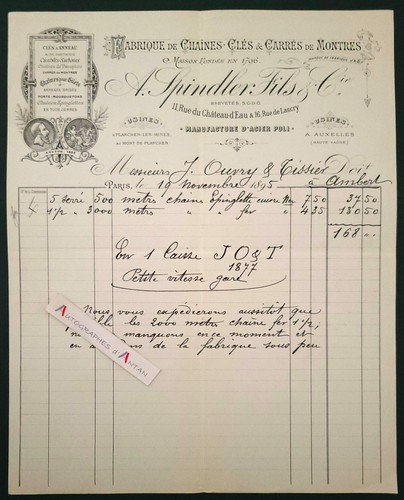 CLÉS À ANNEAU
FABRIQUE DE CHAÎNES-CLÉS & CARRÉS DE MONTRES
MAISON FONDÉE EN 1756
A. Spindler, Fils & Cie
BREVETÉS, S.G.D.G.
11, Rue du Château d'Eau & 16, Rue de Lancry
USINES
MANUFACTURE D'ACIER POLI
USINES
À PLANCHER-LES-MINES
À AUXELLES
AU MONT DE PLANCHER
(HAUTE-SAÔNE)
Messieurs J. Ouvry & Tissier Doit
PARIS, le 19 Novembre 1895 à Ambert
5 serré 500 metres chaine Epinglette cuivre 7 50 37 50
1 1/2 " 3000 metres " " fer " 4 35 130 50
168 " "
En 1 Caisse J O & T
1877
Petite vitesse gare
Nous vous expédierons aussitôt que
les 2000 metres chaîne fer 1 1/2,
manquons en ce moment et
de la fabrique sous peu
AUTOGRAPHES D'ANTAN